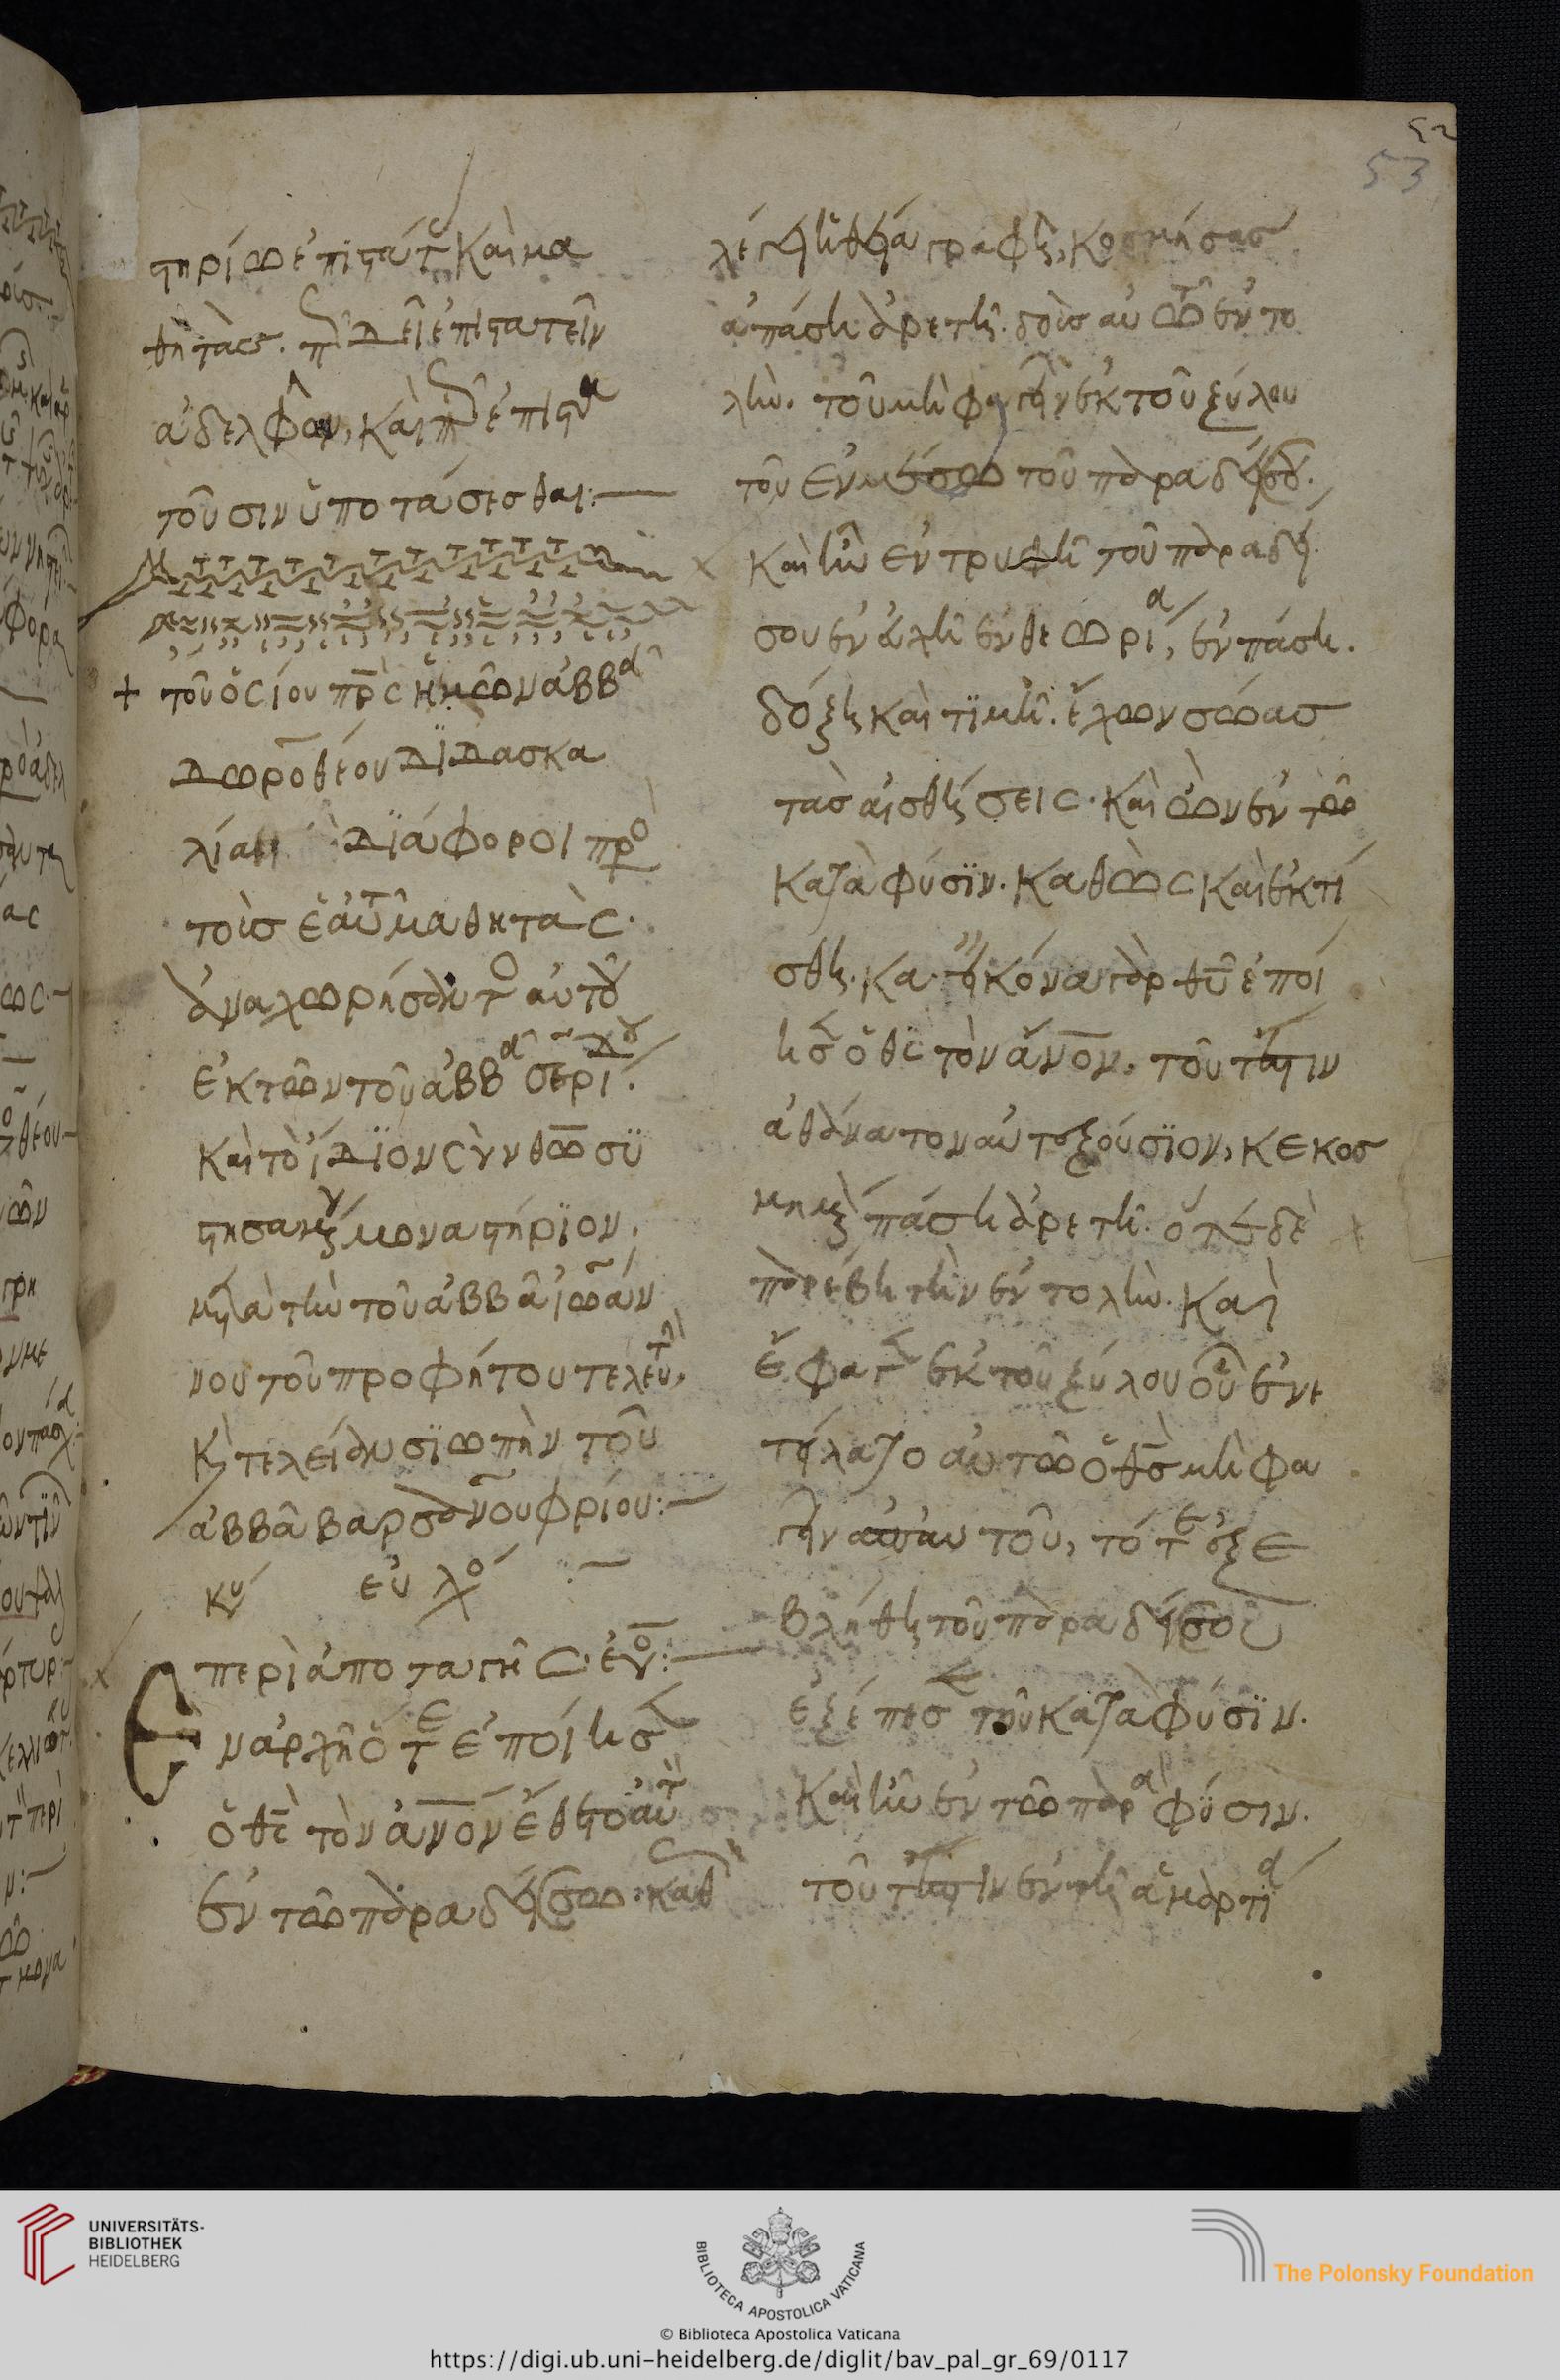 52
53
στηρίω ἐπιστάτ καὶ μα
θητὰς. π δεῖ ἐπιστατεῖν
ἀδελφῶν, καὶ π ἐπιστα
τοῦσιν ὑποτάσεσθαι:—
+ τοῦ ὁσίου πρς ἡμῶν ἀββα
Δωροθέου διδασκα
λίαι διάφοροι προ
τοὺσ ἑαυτ μαθητὰς.
ἀναχωρήσαντο αὐτοῦ
ἐκ τῶν τοῦ ἀββα σερίδου.
καὶ τὸ ἴδιον σὺν θῶ συ
στησαμέν μοναστήριον.
μετὰ τὴν τοῦ ἀββᾶ ἰωάν
νου τοῦ προφήτου τελευτὴν,
κ τελείαν σιωπὴν τοῦ
ἀββᾶ βαρσανουφρίου:—
κυ εὐλο :—
περὶ ἀποταγῆς. ευο:—
Εν ἀρχῆ ὅτε ἐποίησ
ὁ θς τὸν ἀνον ἔθετο αὐτ
ἐν τῶ παραδείσω. καθ
λέγει ἡ θεία γραφὴ, κοσμήσας
ἁπάση ἀρετῆ. δοὺσ αὐτῶ ἐντο
λὴν. τοῦ μὴ φαγεῖν ἐκ τοῦ ξύλου
τοῦ ἐν μέσω τοῦ παραδείσου.
καὶ ἦν ἐν τρυφῆ τοῦ παραδεί
σου ἐν εὐχῆ ἐν θεωρία, ἐν πάση.
δόξη καὶ τιμῆ. ἔχων σώας
τὰσ αἰσθήσεις. καὶ ὢν ἐν τῶ
κατὰ φύσιν. καθὼς καὶ ἐκτί
σθη. κα. εἰκόνα γὰρ θυ ἐποί
ησ ὁ θς τὸν ἄνον, τοῦτέστιν
ἀθάνατον αὐτεξούσιον, κεκοσ
μημέν πάση ἀρετῆ. ὅτε δὲ
παρέβη τὴν ἐντολὴν. καὶ
ἔφαγ ἐκ τοῦ ξύλου οὗ ἐνε
τείλατο αὐτῶ ὁ θς μὴ φα
γεῖν ἀπ αὐτοῦ, τότε ἐξε
βλήθη τοῦ παραδείσου
ἐξέπεσ τοῦ κατὰ φύσιν.
καὶ ἦν ἐν τῶ παρὰ φύσιν.
τοῦτέστιν ἐν τῆ ἁμαρτία
UNIVERSITÄTS-
BIBLIOTHEK
HEIDELBERG
BIBLIOTHECA APOSTOLICA VATICANA
The Polonsky Foundation
© Biblioteca Apostolica Vaticana
https://digi.ub.uni-heidelberg.de/diglit/bav_pal_gr_69/0117